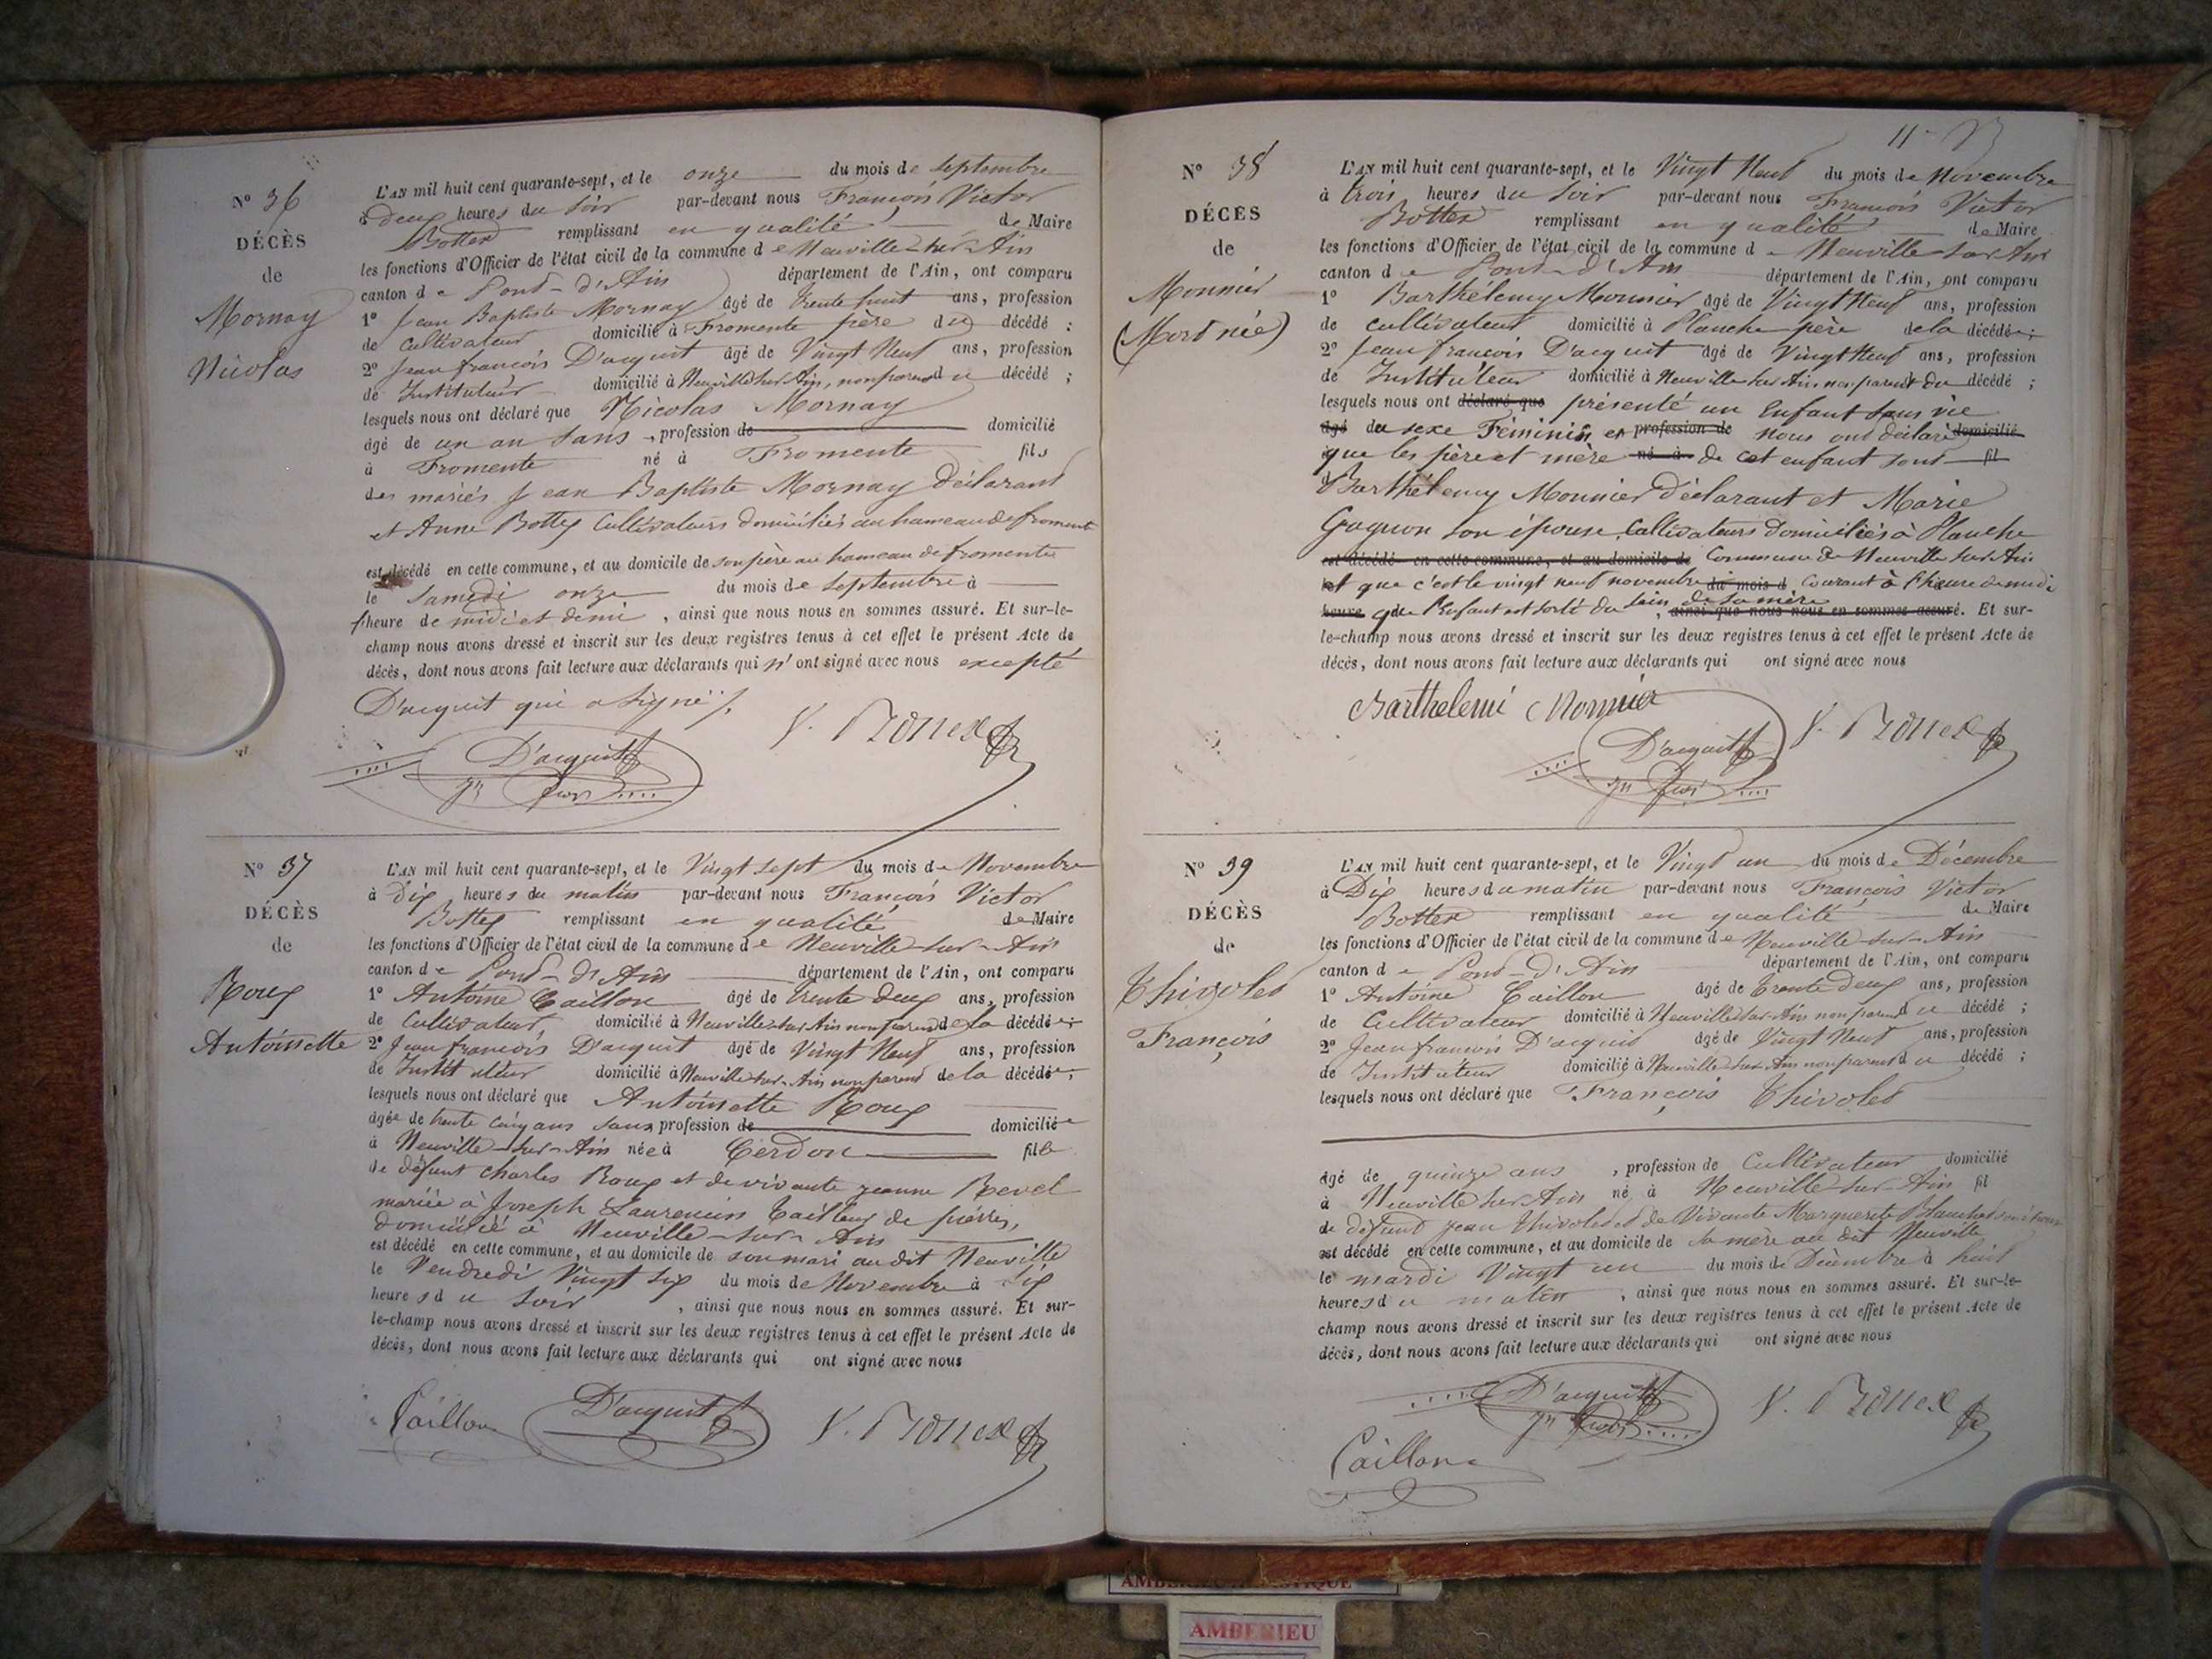 N° 36
DÉCÈS
de
Mornay
Nicolas
L'AN mil huit cent quarante-sept, et le onze du mois de Septembre
à deux heures du soir par-devant nous François Victor
Bottex remplissant en qualité de Maire
les fonctions d'Officier de l'état civil de la commune de Neuville-sur-Ain
canton de Pont-d'Ain département de l'Ain, ont comparu
1° Jean Baptiste Mornay âgé de trente huit ans, profession
de Cultivateur domicilié à Fromente père du décédé ;
2° Jean françois D'acquit âgé de Vingt Neuf ans, profession
de Instituteur domicilié à Neuville sur Ain, non parent du décédé ;
lesquels nous ont déclaré que Nicolas Mornay
âgé de un an sans, profession de domicilié
à Fromente né à Fromente fils
des mariés Jean Baptiste Mornay Déclarant
et Anne Bottex Cultivateurs domiciliés au hameau de fromente
est décédé en cette commune, et au domicile de son père au hameau de fromente
le Samedi onze du mois de Septembre à
l'heure de midi et demi, ainsi que nous nous en sommes assuré. Et sur-le-
champ nous avons dressé et inscrit sur les deux registres tenus à cet effet le présent Acte de
décès, dont nous avons fait lecture aux déclarants qui n'ont signé avec nous excepté
D'acquit qui a signé /.
D'acquit
Jn fcois
V. Bottex
N° 37
DÉCÈS
de
Roux
Antoinette
L'AN mil huit cent quarante-sept, et le Vingt sept du mois de Novembre
à Dix heures du matin par-devant nous François Victor
Bottex remplissant en qualité de Maire
les fonctions d'Officier de l'état civil de la commune de Neuville-sur-Ain
canton de Pont-d'Ain département de l'Ain, ont comparu
1° Antoine Caillon âgé de trente deux ans, profession
de Cultivateur, domicilié à Neuville sur Ain non parent de la décédée ;
2° Jean françois D'acquit âgé de Vingt Neuf ans, profession
de Instituteur domicilié à Neuville-sur-Ain non parent de la décédée ;
lesquels nous ont déclaré que Antoinette Roux
âgée de trente cinq ans sans profession de domiciliée
à Neuville-sur-Ain née à Cerdon fille
de défunt Charles Roux et de vivante jeanne Revel
mariée à Joseph Laurencin tailleur de pierres,
domicilié à Neuville-sur-Ain
est décédé en cette commune, et au domicile de son mari au dit Neuville
le Vendredi Vingt six du mois de Novembre à six
heures du soir, ainsi que nous nous en sommes assuré. Et sur-
le-champ nous avons dressé et inscrit sur les deux registres tenus à cet effet le présent Acte de
décès, dont nous avons fait lecture aux déclarants qui ont signé avec nous
Caillon D'acquit V. Bottex
N° 38
DÉCÈS
de
Monnier
(Mort née)
L'AN mil huit cent quarante-sept, et le Vingt Neuf du mois de Novembre
à trois heures du soir par-devant nous François Victor
Bottex remplissant en qualité de Maire
les fonctions d'Officier de l'état civil de la commune de Neuville sur Ain
canton de Pont-d'Ain département de l'Ain, ont comparu
1° Barthélemy Monnier âgé de Vingt Neuf ans, profession
de cultivateur domicilié à Planche père de la décédée ;
2° Jean françois D'acquit âgé de Vingt Neuf ans, profession
de Instituteur domicilié à Neuville sur Ain non parent du décédé ;
lesquels nous ont déclaré que présenté un Enfant sans vie
âgé du sexe Féminin et profession de nous ont déclaré domicilié
que les père et mère né à de cet enfant sont fil
Barthélemy Monnier Déclarant et Marie
Goynon son épouse, Cultivateurs domiciliés à Planche
est décédé en cette commune, et au domicile de Commune de Neuville sur Ain
et que c'est le vingt neuf novembre du mois d courant à l'heure de midi
heure que l'Enfant est sorti du sein de sa mère, ainsi que nous nous en sommes assuré. Et sur-
le-champ nous avons dressé et inscrit sur les deux registres tenus à cet effet le présent Acte de
décès, dont nous avons fait lecture aux déclarants qui ont signé avec nous
Barthelemi Monnier
D'acquit
Jn fcois
V. Bottex
N° 39
DÉCÈS
de
Thivolet
François
L'AN mil huit cent quarante-sept, et le Vingt un du mois de Décembre
à Dix heures du matin par-devant nous François Victor
Bottex remplissant en qualité de Maire
les fonctions d'Officier de l'état civil de la commune de Neuville-sur-Ain
canton de Pont-d'Ain département de l'Ain, ont comparu
1° Antoine Caillon âgé de trente deux ans, profession
de Cultivateur domicilié à Neuville sur Ain non parent du décédé ;
2° Jean françois D'acquit âgé de Vingt Neuf ans, profession
de Instituteur domicilié à Neuville-sur-Ain non parent du décédé ;
lesquels nous ont déclaré que François Thivolet
âgé de quinze ans, profession de Cultivateur domicilié
à Neuville sur Ain né à Neuville-sur-Ain fil
de défunt Jean Thivolet et de Vivante Marguerite Blanchet
est décédé en cette commune, et au domicile de sa mère au dit Neuville
le mardi Vingt un du mois de Décembre à huit
heures du matin, ainsi que nous nous en sommes assuré. Et sur-le-
champ nous avons dressé et inscrit sur les deux registres tenus à cet effet le présent Acte de
décès, dont nous avons fait lecture aux déclarants qui ont signé avec nous
D'acquit
Jn fcois
V. Bottex
Caillon
AMBERIEU